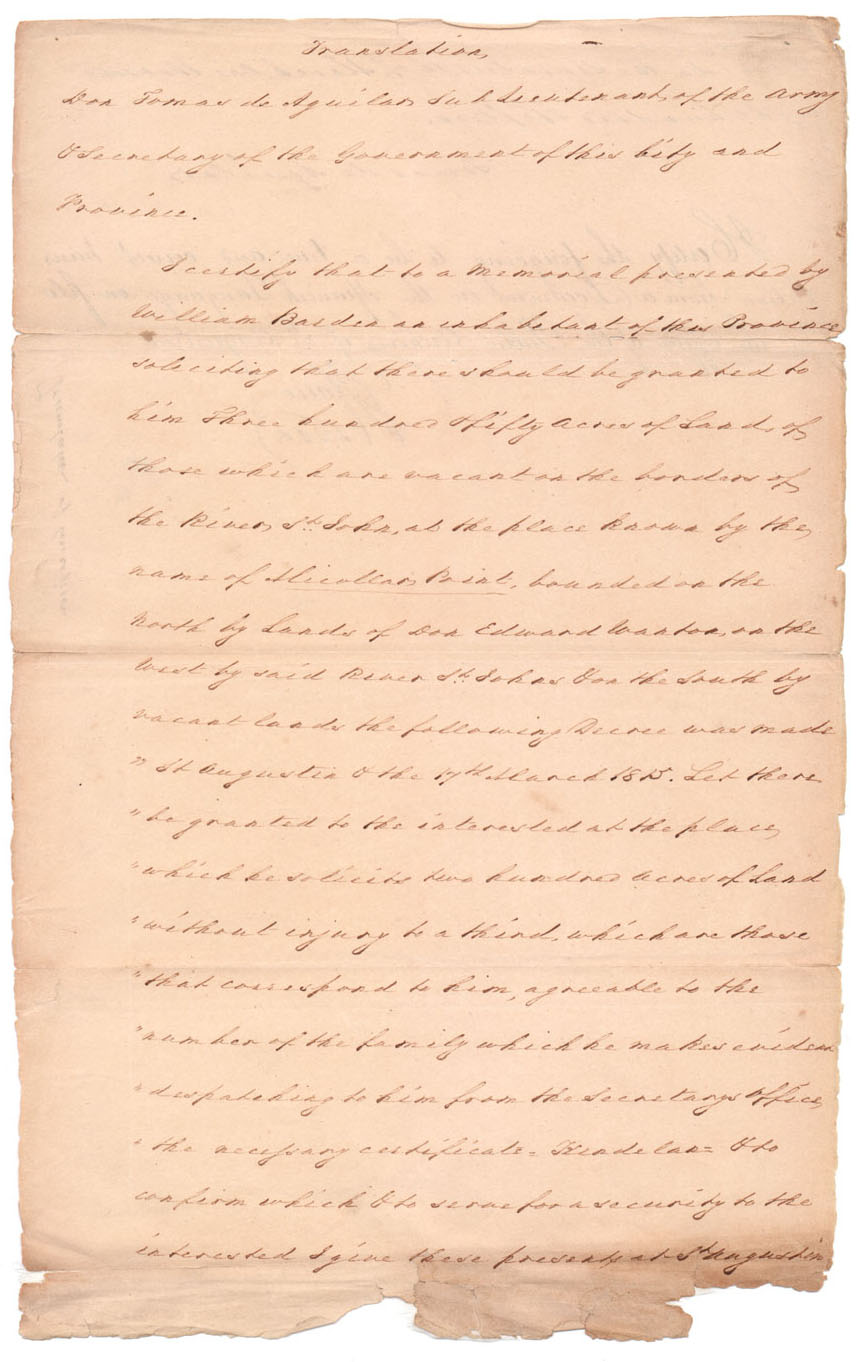 Translation,
Don Tomas de Aguilar, Sub Lieutenant, of the Army
& Secretary of the Government of this City and
Province.
I certify that to a Memorial presented by
William Barden an inhabitant of this Province
soliciting that there should be granted to
him Three hundred & fifty Acres of Land, of
those which are vacant on the borders of
the River St. John, at the place known by the
name of Point, bounded on the
North by Lands of Don Edward Wanton, on the
West by said River St. Johns & on the South by
vacant lands the following Decree was made
" St Augustin & the 17th March 1815. Let there
" be granted to the interested at the place,
" which he solicits two hundred acres of Land
" without injury to a third, which are those
" that correspond to him, agreeable to the
" number of the family which he makes eviden
" despatching to him from the Secretarys Office,
" the necessary certificate = Kindelan = & to
confirm which & to serve for a security to the
interested I give these presents at St Augustin